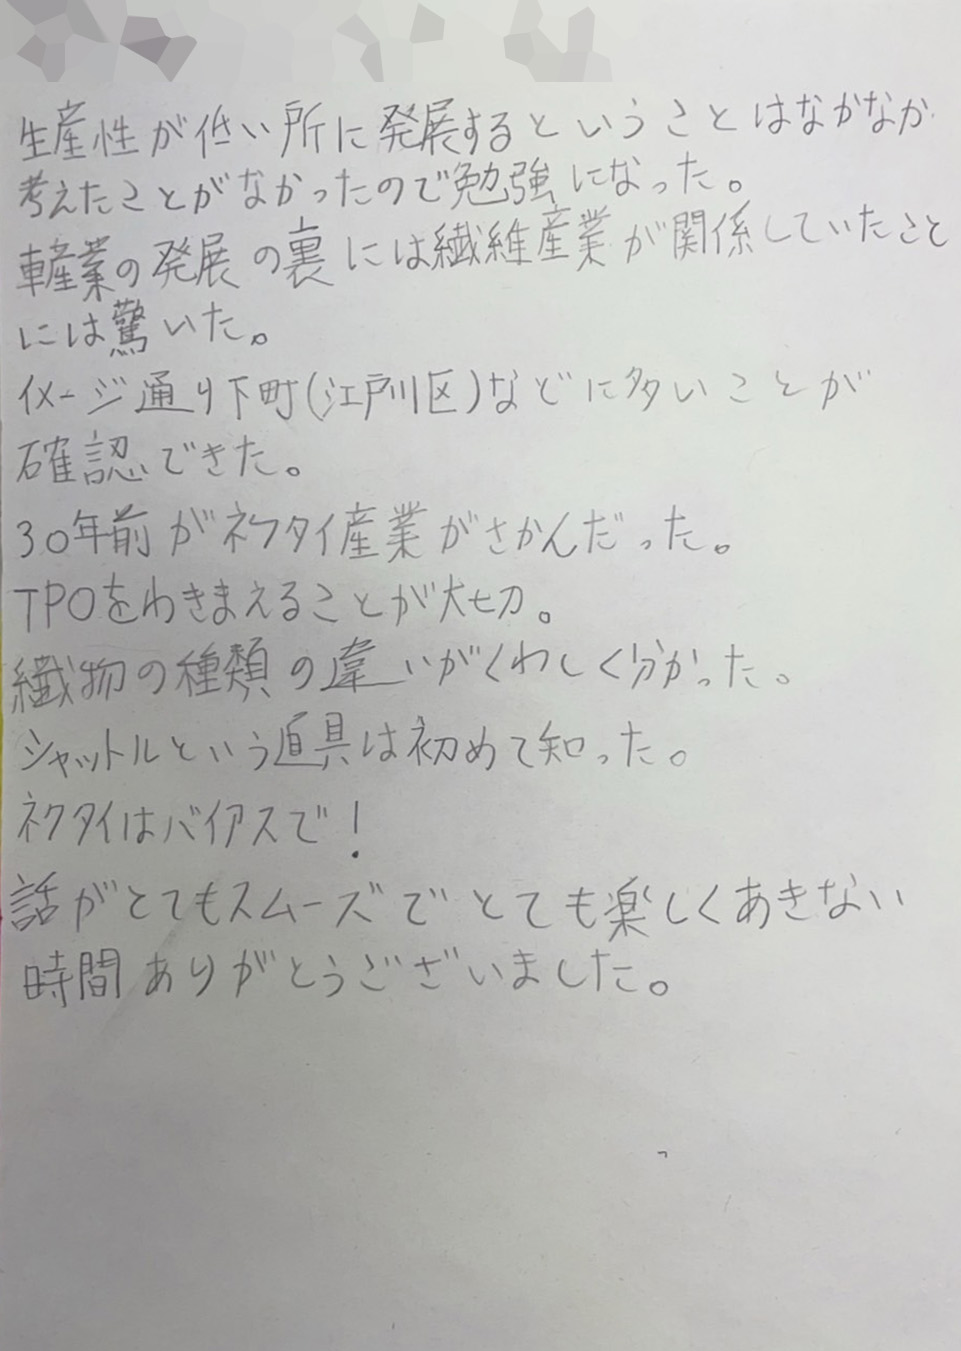 生産性が低い所に発展するということはなかなか
考えたことがなかったので勉強になった。
車産業の発展の裏には繊維産業が関係していたこと
には驚いた。
イメージ通り下町(江戸川区)などに多いことが
確認できた。
30年前がネクタイ産業がさかんだった。
TPOをわきまえることが大切。
繊物の種類の違いがくわしく分かった。
シャットルという道具は初めて知った。
ネクタイはバイアスで!
話がとてもスムーズでとても楽しくあきない
時間ありがとうございました。